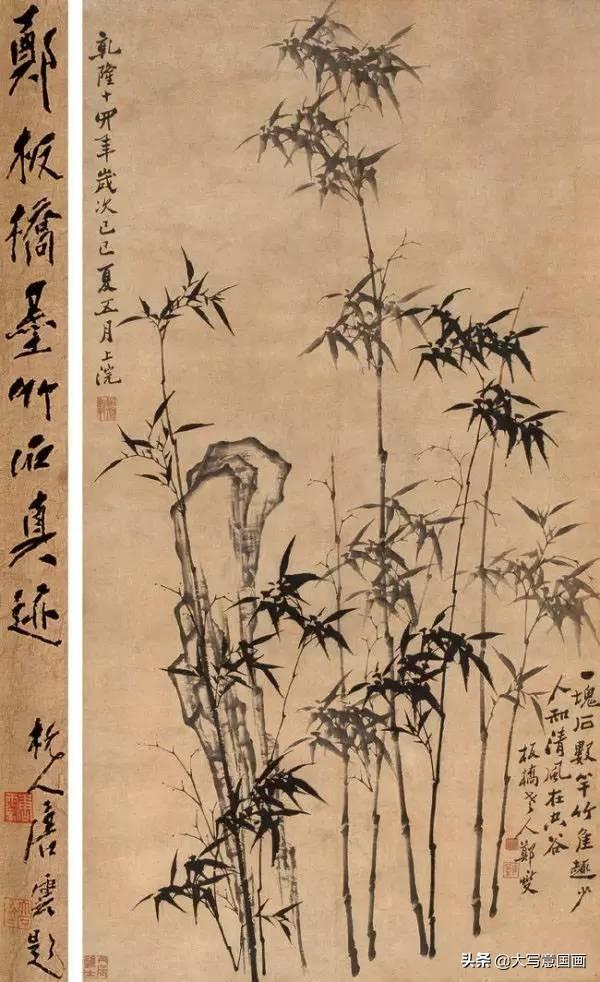 鄭板橋墨竹石真迹
杭人唐雲題
乾隆十四年歲次己巳夏五月上浣
一塊石數竿竹佳趣少
人知清風在空谷
板橋老人鄭燮
头条 @大写意国画